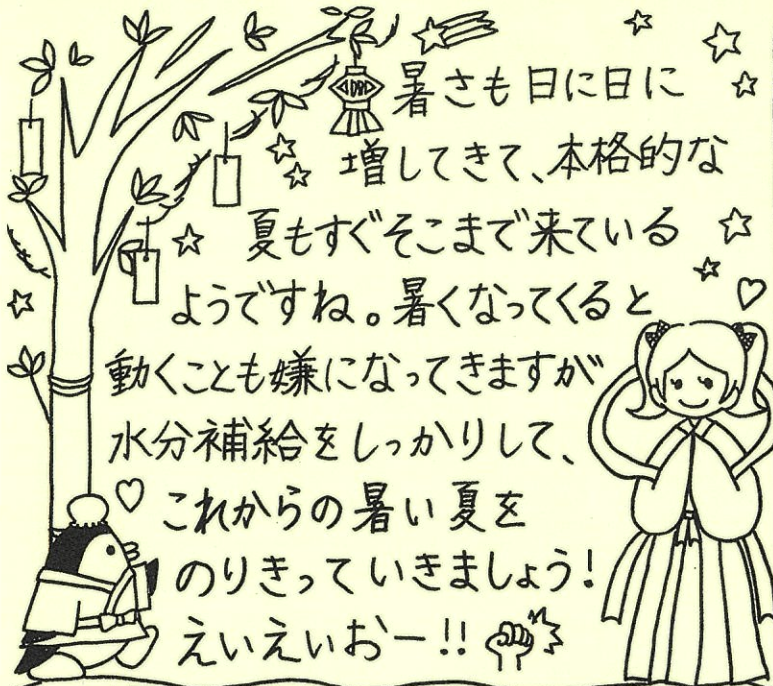 暑さも日に日に
増してきて、本格的な
夏もすぐそこまで来ている
ようですね。暑くなってくると
動くことも嫌になってきますが
水分補給をしっかりして、
これからの暑い夏を
のりきっていきましょう!
えいえいおー!!